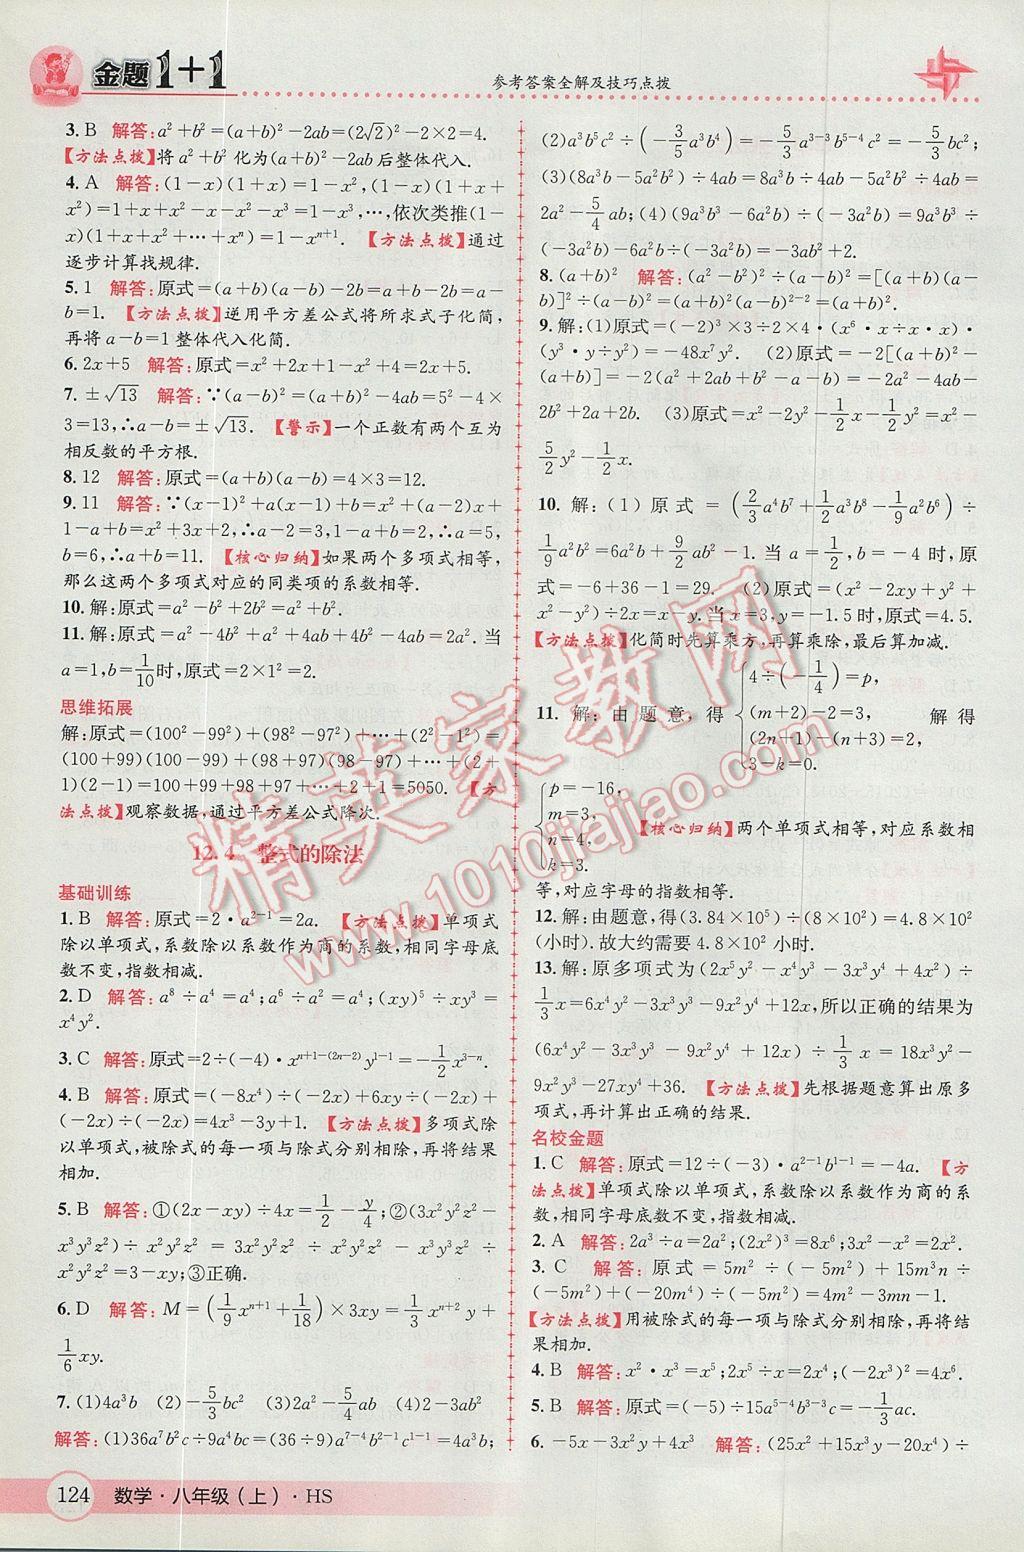 金题1+1
参考答案全解及技巧点拨
3. B 解答:a²+b²=(a+b)²-2ab=(2√2)²-2×2=4.
【方法点拨】将 a²+b² 化为(a+b)²-2ab后整体代入.
4. A 解答:(1-x)(1+x)=1-x²,(1-x)(1+x+
x²)=1+x+x²-x-x²-x³=1-x³,…,依次类推(1-
x)(1+x+x²+…+xⁿ)=1-xⁿ⁺¹. 【方法点拨】通过
逐步计算找规律.
5. 1 解答:原式=(a+b)(a-b)-2b=a+b-2b=a-
b=1. 【方法点拨】逆用平方差公式将所求式子化简,
再将a-b=1整体代入化简.
6. 2x+5 解答:原式=x²+2x+1-x²+4=2x+5.
7. ±√13 解答:∵(a-b)²=(a+b)²-4ab=5²-4×
3=13,∴a-b=±√13. 【警示】一个正数有两个互为
相反数的平方根.
8. 12 解答:原式=(a+b)(a-b)=4×3=12.
9. 11 解答:∵(x-1)²+a(x+1)+b=x²+(a-2)x+
1-a+b=x²+3x+7,∴a-2=3,1+a+b=7,∴a=5,
b=6,∴a+b=11. 【核心归纳】如果两个多项式相等,
那么这两个多项式对应的同类项的系数相等.
10. 解:原式=a²-b²+2b²=a²+b².
11. 解:原式=a²-4b²+a²+4ab+4b²-4ab=2a². 当
a=1,b=1/10时,原式=2×1²=2.
思维拓展
解:原式=(100²-99²)+(98²-97²)+…+(2²-1²)=
(100+99)(100-99)+(98+97)(98-97)+…+(2+
1)(2-1)=100+99+98+97+…+2+1=5050. 【方
法点拨】观察数据,通过平方差公式降次.
12.4 整式的除法
基础训练
1. B 解答:原式=2·a²⁻¹=2a. 【方法点拨】单项式
除以单项式,系数除以系数作为商的系数,相同字母底
数不变,指数相减.
2. D 解答:a⁸÷a⁴=a⁴;a⁶÷a²=a⁴;(xy)⁵÷xy³=
x⁴y².
3. C 解答:原式=2÷(-4)·xⁿ⁺¹⁻⁽²ⁿ⁻²⁾y¹⁻¹=-1/2x³⁻ⁿ.
4. B 解答:原式=(-8x⁴)÷(-2x)+6xy÷(-2x)+
(-2x)÷(-2x)=4x³-3y+1. 【方法点拨】多项式除
以单项式,被除式的每一项与除式分别相除,再将结果
相加.
5. B 解答:①(2x-xy)÷4x=1/2-y/4;②(3x²y²z²-
x³y³z²)÷x²y²z²=3x²y²z²÷x²y²z²-x³y³z²÷
x²y²z²=3-xy;③正确.
6. D 解答:M=(1/9xⁿ⁺¹+1/18)×3xy=1/3xⁿ⁺²y+
1/6xy.
7. (1)4a³b (2)-5/3bc² (3)2a²-5/4ab (4)2-3ab²
解答:(1)36a⁷b²c÷9a⁴bc=(36÷9)a⁷⁻⁴b²⁻¹c¹⁻¹=4a³b;
(2)a³b⁵c²÷(-3/5a³b⁴)=-5/3a³⁻³b⁵⁻⁴c²=-5/3bc²;
(3)(8a³b-5a²b²)÷4ab=8a³b÷4ab-5a²b²÷4ab=
2a²-5/4ab;(4)(9a³b³-6a²b)÷(-3a²b)=9a³b³÷
(-3a²b)-6a²b÷(-3a²b)=-3ab²+2.
8. (a+b)² 解答:(a²-b²)²÷(a-b)²=[(a+b)(a-
b)]²÷(a-b)²=(a+b)²(a-b)²⁻²=(a+b)².
9. 解:(1)原式=(-2)³×3÷2×4·(x⁶·x÷x·x)·
(y³·y÷y²)=-48x⁷y². (2)原式=-2[(a+b)²-
(a+b)]=-2(a²+2ab+b²-a-b)=-2a²-4ab-
2b²+2a+2b. (3)原式=x²-2y²-1/2x-1/2y²=x²-
5/2y²-1/2x.
10. 解:(1)原式=(2/3a⁴b⁷+1/2a³b⁸-1/9a²b⁶)÷
1/9a²b⁶=6a²b+9/2ab²-1. 当a=1/2,b=-4时,原
式=-6+36-1=29. (2)原式=(x²-2xy+y²+
x²-y²)÷2x=x-y. 当x=3,y=-1.5时,原式=4.5.
【方法点拨】化简时先算乘方,再算乘除,最后算加减.
11. 解:由题意,得{4÷(-1/4)=p,
(m+2)-2=3,
(2n+1)-(n+3)=2,
3-k=0.
解得
{p=-16,
m=3,
n=4,
k=3.
【核心归纳】两个单项式相等,对应系数相
等,对应字母的指数相等.
12. 解:由题意,得(3.84×10⁵)÷(8×10²)=4.8×10²
(小时). 故大约需要4.8×10²小时.
13. 解:原多项式为(2x⁵y²-x⁴y³-3x³y⁴+4x²)÷
1/3x=6x⁴y²-3x³y³-9x²y⁴+12x,所以正确的结果为
(6x⁴y²-3x³y³-9x²y⁴+12x)÷1/3x=18x³y²-
9x²y³-27xy⁴+36. 【方法点拨】先根据题意算出原多
项式,再计算出正确的结果.
名校金题
1. C 解答:原式=12÷(-3)·a²⁻¹b¹⁻¹=-4a. 【方
法点拨】单项式除以单项式,系数除以系数作为商的系
数,相同字母底数不变,指数相减.
2. A 解答:2a³÷a=2a²;(2x²)³=8x⁶;3x²·2x³=6x⁵.
3. C 解答:原式=5m²÷(-5m²)+15m³n÷
(-5m²)+(-20m⁴)÷(-5m²)=4m²-3mn-1.
【方法点拨】用被除式的每一项与除式分别相除,再将
结果相加.
4. B 解答:x²·x³=x⁵;2x⁵÷x=2x⁴;(-2x³)²=4x⁶.
5. B 解答:原式=(-5)÷15a⁵⁻⁴b³⁻³c=-1/3ac.
6. -5x-3x²y+4x³ 解答:(25x²+15x³y-20x⁴)÷
124 数学·八年级(上)·HS
精英家教网
www.1010jiajiao.com